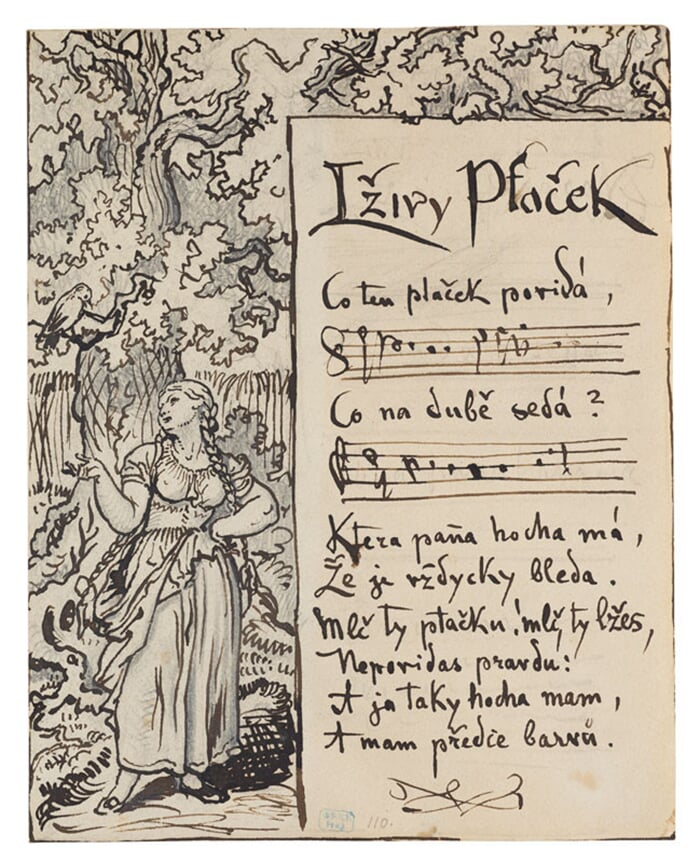 Lživy Ptaček
Co ten ptaček poridá,
Co na dubě sedá?
Ktera paňa hocha má,
Že je vždycky bleda.
Mlč ty ptačku! mlč, ty lžeš,
Neporidas pravdu:
A ja taky hocha mam,
A mam předce barvů.
110.